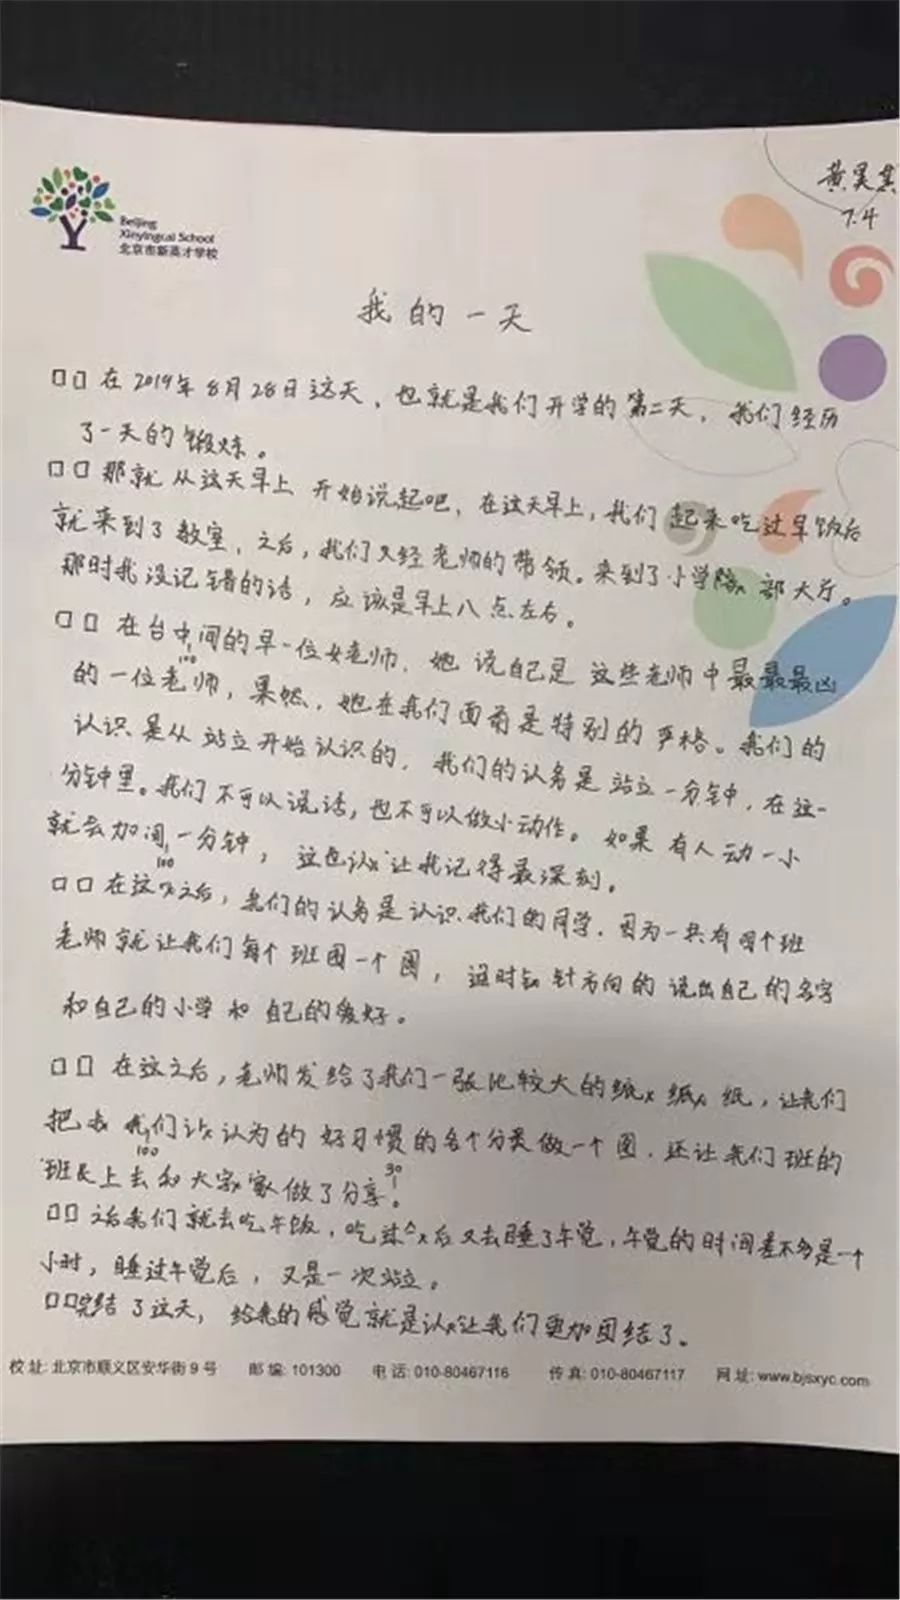 Beijing
Xinyingcai School
北京市新英才学校
黄昊
7.4
我的一天
□□在2019年8月28日这天，也就是我们开学的第二天，我们经历
了一天的锻炼。
□□那就从这天早上开始说起吧，在这天早上，我们起来吃过早饭后
就来到了教室，之后，我们又经老师的带领。来到了小学部大厅。
那时我没记错的话，应该是早上八点左右。
□□在台中间的早一位女老师，她说自己是这些老师中最最最凶
100
的一位老师，果然，她在我们面前是特别的严格。我们的
认识是从站立开始认识的，我们的认务是站立一分钟，在这一
分钟里。我们不可以说话，也不可以做小动作。如果有人动一小
就会加间一分钟，这也让我记得最深刻。
100
□□在这之后，我们的认务是认识我们的同学，因为一共有四个班
老师就让我们每个班围一个圈，逆时针方向的说出自己的名字
和自己的小学和自己的爱好。
□□在这之后，老师发给了我们一张比较大的纸，让我们
把我们认为的好习惯的各个分类做一个图，还让我们班的
100
班长上去和大家做了分享。
30
□□之后我们就去吃午饭，吃过后又去睡了午觉，午觉的时间差不多是一个
小时，睡过午觉后，又是一次站立。
□□完结了这天，给我的感觉就是让我们更加团结了。
校址: 北京市顺义区安华街9号 邮编: 101300 电话: 010-80467116 传真: 010-80467117 网址: www.bjsxyc.com